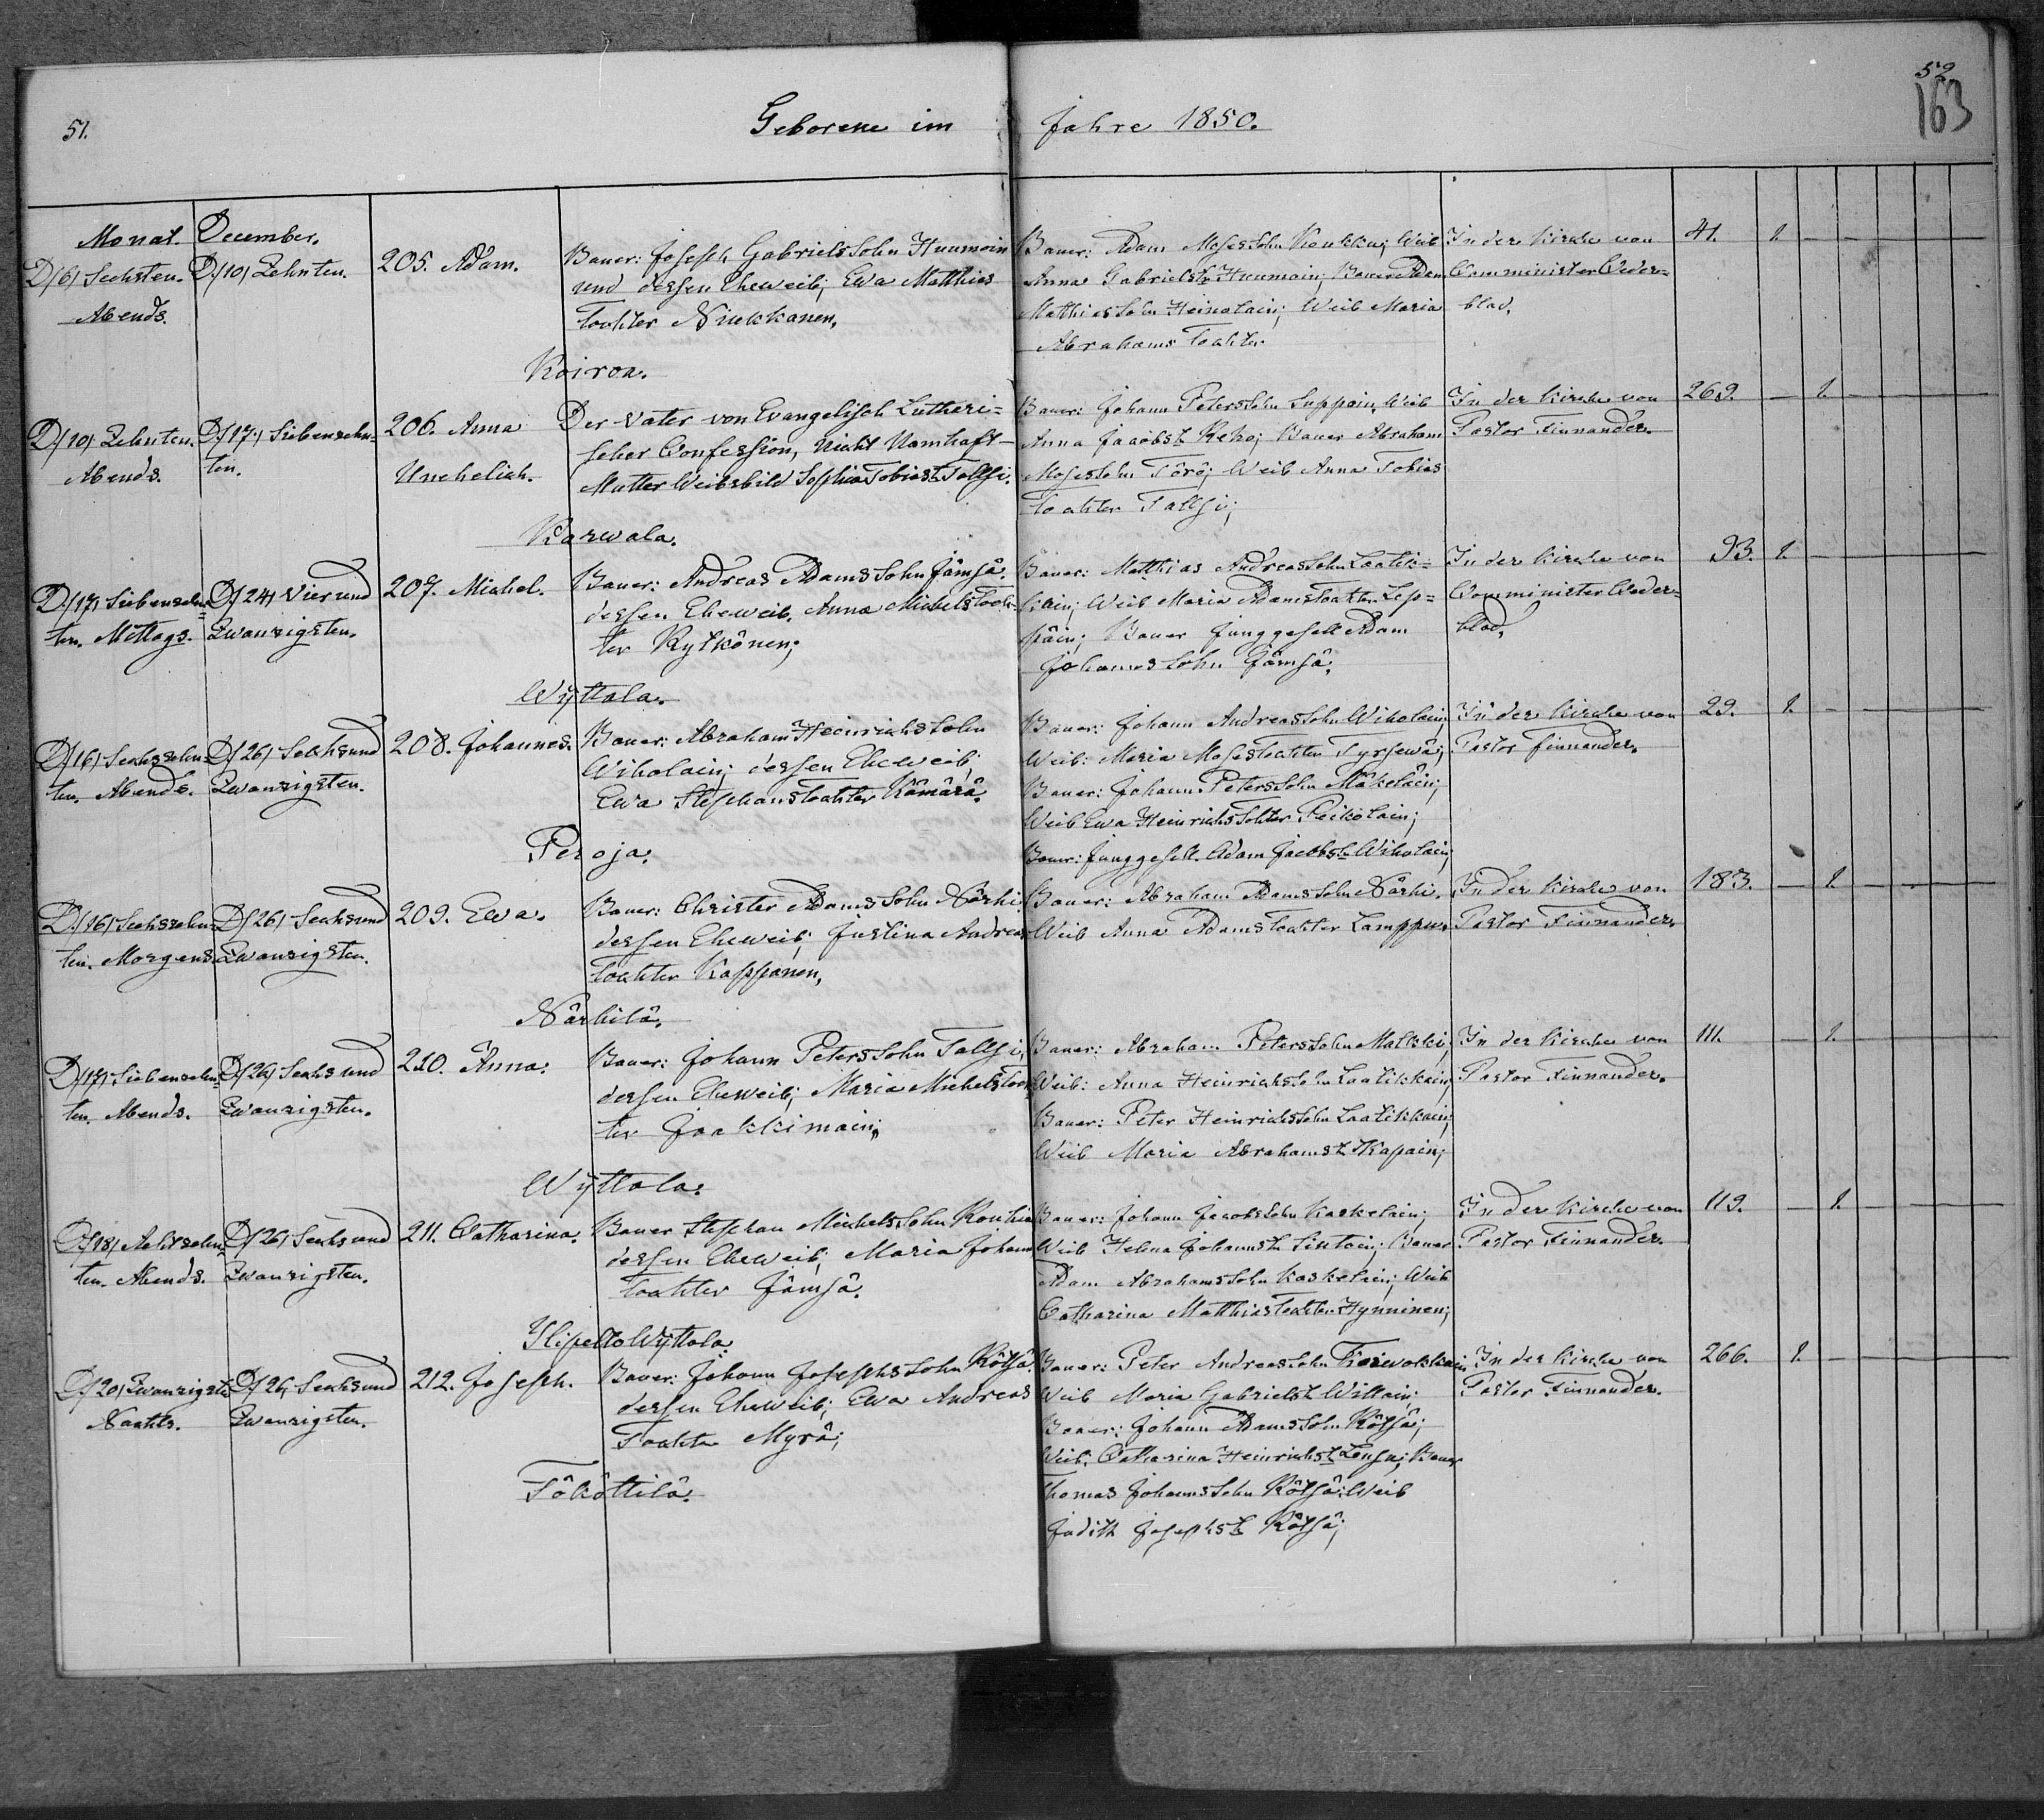 51.
Geborene im Jahre 1850.
52
163
Monat. December.
D/6/ Sechsten. Abends.
D/10/ Zehnten.
205. Adam.
Bauer: Joseph Gabriels Sohn Huumoin
und dessen Eheweib; Ewa Matthias
Tochter Nuckkanen.
Koiroa.
Bauer: Adam Moses Sohn Koukku; Weib
Anna Gabrielst Huumain; Bauer Adam
Matthies Sohn Heinolain; Weib Maria
Abrahams Tochter
In der Kirche von
Comminister Ceder=
blad.
41. 1.
D/10/ Zehnten.
Abends.
D/17/ Siebenzehn=
ten.
206. Anna
Unehelich.
Der Vater von Evangelisch Lutheri=
scher Confession, Nicht Namhaft-
Mutter Weibsbild Sophia Tobiast Tallsi.
Karwala.
Bauer: Johann Peters Sohn Suppoin, Weib
Anna Jacobst Reko; Bauer Abraham
Moses Sohn Törö; Weib Anna Tobias
Tochter Tallsi;
In der Kirche von
Pastor Finnander.
269. 1.
D/17/ Siebenzehn=
ten. Mittags.
D/24/ Vier und
Zwanzigsten.
207. Michel.
Bauer: Andreas Adams Sohn Jämsä.
dessen Eheweib, Anna Michels Toch=
ter Rytkönen;
Wyttola.
Bauer: Matthias Andreas Sohn Laatik=
kain; Weib Maria Adams Tochter Lep=
päin; Bauer Junggesell Adam
Johanns Sohn Jämsä;
In der Kirche von
Comminister Ceder=
blad.
93. 1.
D/16/ Sechszehn=
ten. Abends.
D/26/ Sechsund
Zwanzigsten.
208. Johannes.
Bauer: Abraham Heinrichs Sohn
Wiholain; dessen Eheweib;
Ewa Stephans Tochter Kämärä.
Peroja.
Bauer: Johann Andreas Sohn Wiholain;
Weib: Maria Moses Tochter Tyrsewä;
Bauer: Johann Peters Sohn Mäkeläin;
Weib Ewa Heinrichs Tohter Peikolain;
Bauer: Junggesell. Adam Jacobs Sn Wiholain;
In der Kirche von
Pastor Finnander.
29. 1.
D/16/ Sechszehn=
ten. Morgens.
D/26/ Sechsund
Zwanzigsten.
209. Ewa.
Bauer: Christer Adams Sohn Närhi.
dessen Eheweib; Justina Andreas
Tochter Kappanen,
Närhilä.
Bauer: Abraham Adams Sohn Närhi.
Weib Anna Adams Tochter Lamppu.
In der Kirche von
Pastor Finnander.
183. 1.
D/17/ Siebenzehn=
ten. Abends.
D/26/ Sechs und
Zwanzigsten.
210. Anna.
Bauer: Johann Peters Sohn Tallsi,
dessen Eheweib; Maria Michels Toch
ter Jaakkimain;
Wyttola.
Bauer: Abraham Peters Sohn Malkki;
Weib: Anna Heinrichs Sohn Laatikkain;
Bauer: Peter Heinrichs Sohn Laatikkain;
Weib Maria Abrahamst Kapain;
In der Kirche von
Pastor Finnander.
111. 1.
D/18/ Achtzehn=
ten. Abends.
D/26/ Sechs und
Zwanzigsten.
211. Catharina.
Bauer Stephan Michels Sohn Kouhia
dessen Eheweib; Maria Johann
Tochter Jämsä.
Ylipelto Wyttola
Bauer: Johann Jacobs Sohn Kaskelain;
Weib Helena Johannst Sintoin; Bauer
Adam Abrahams Sohn Kaskelain; Weib
Catharina Matthias Tochter Hynninen;
In der Kirche von
Pastor Finnander.
119. 1.
D/20/ Zwanzigste
Nachts.
D/26/ Sechsund
Zwanzigsten.
212. Joseph.
Bauer: Johann Josephs Sohn Rötsä.
dessen Eheweib; Ewa Andreas
Tochter Myrä;
Tököttilä.
Bauer: Peter Andreas Sohn
Weib Maria Gabrielst Willain;
Bauer: Johann Adams Sohn Rötsä;
Weib. Catharina Heinrichst Lensu; Bauer
Thomas Johanns Sohn Rötsä: Weib
Judith Josephst Rötsä;
In der Kirche von
Pastor Finnander.
266. 1.